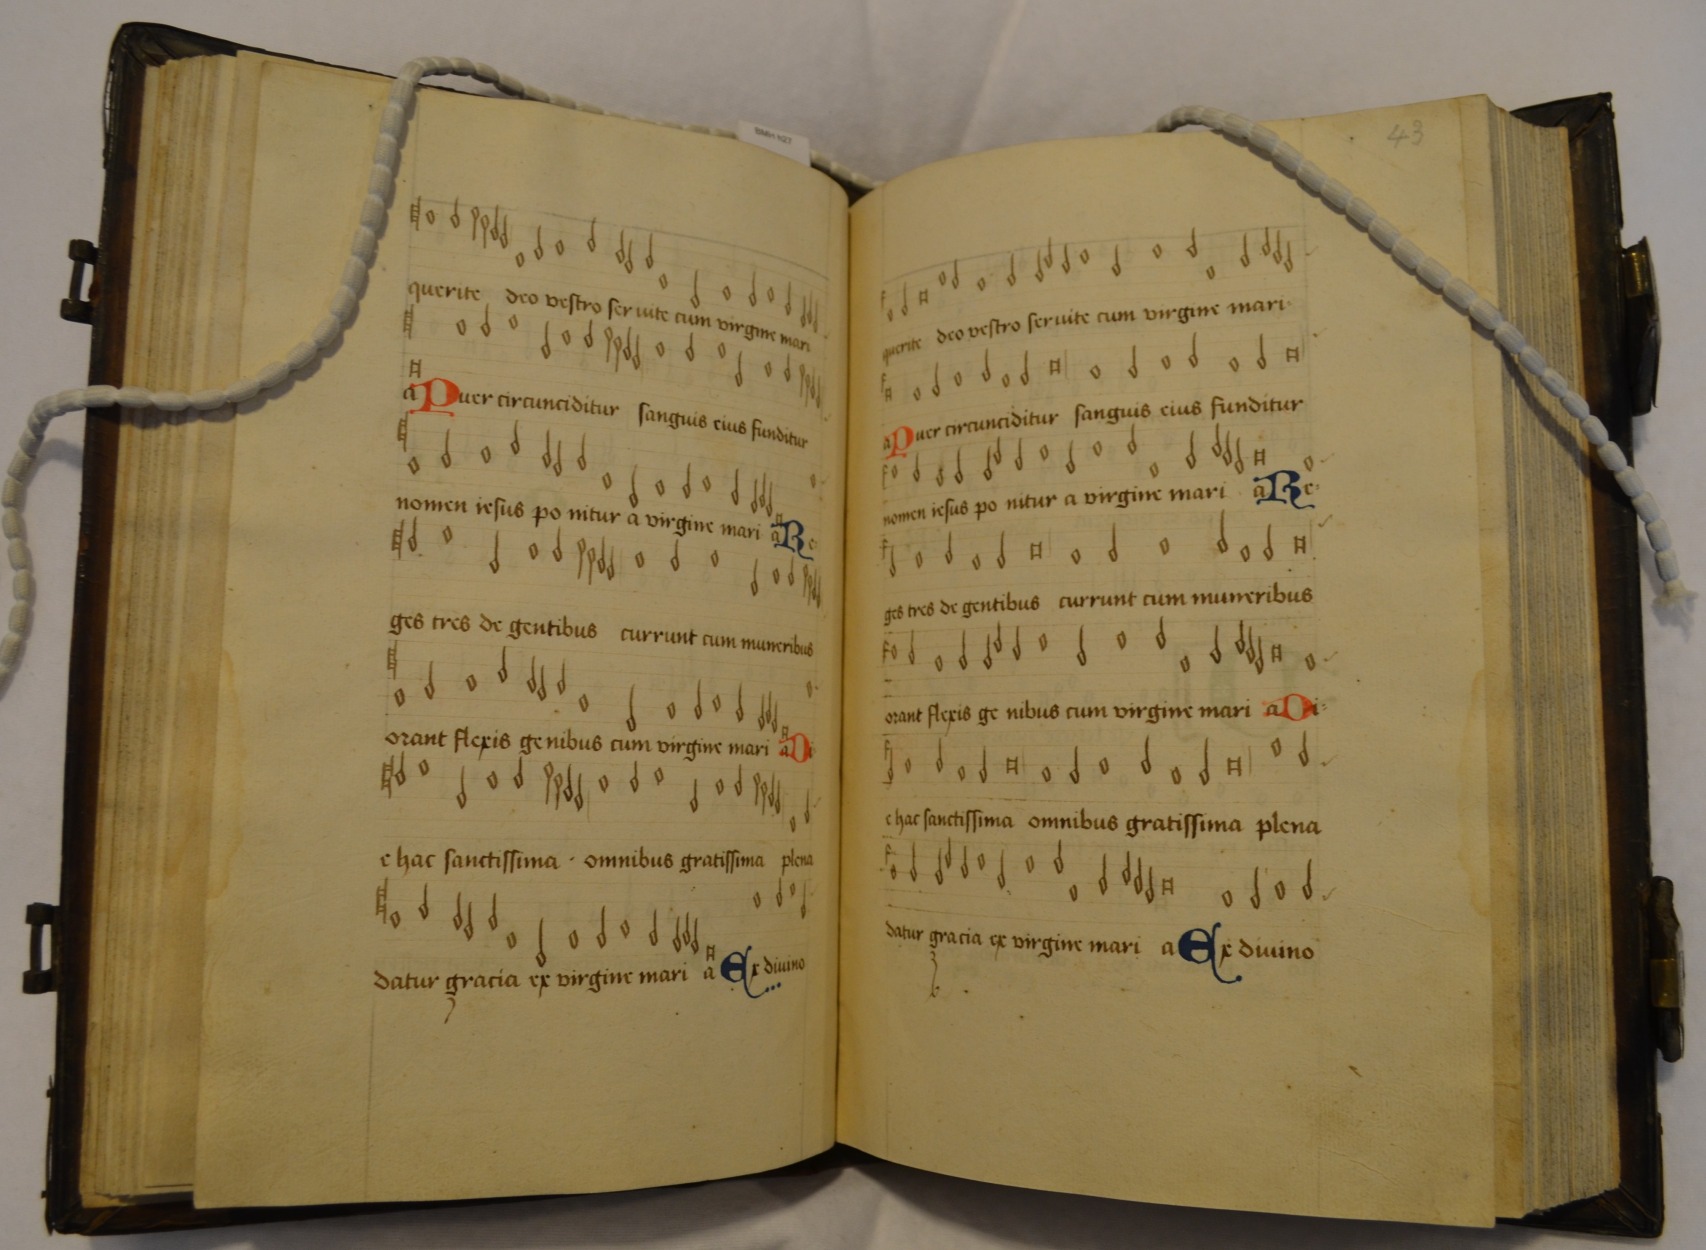 BMH h27
querite deo vestro seruite cum virgine mari
a Puer circunciditur sanguis eius funditur
nomen iesus po nitur a virgine mari a Re
ges tres de gentibus currunt cum muneribus
orant flexis ge nibus cum virgine mari a Di
c hac sanctissima · omnibus gratissima plena
datur gracia ex virgine mari a Ex diuino
43
querite deo vestro seruite cum virgine mari
a Puer circunciditur sanguis eius funditur
nomen iesus po nitur a virgine mari a Re
ges tres de gentibus currunt cum muneribus
orant flexis ge nibus cum virgine mari a Di
c hac sanctissima omnibus gratissima plena
datur gracia ex virgine mari a Ex diuino